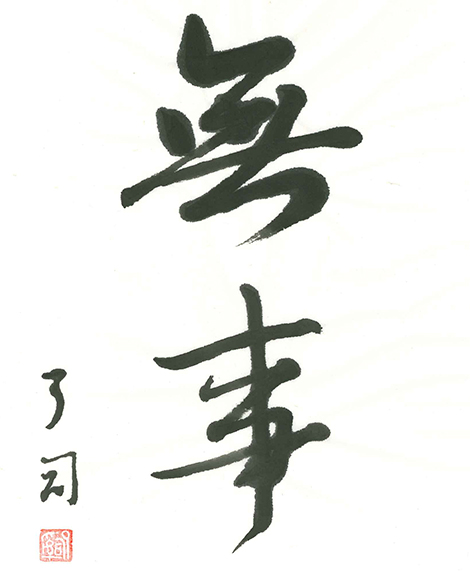 無事
了司